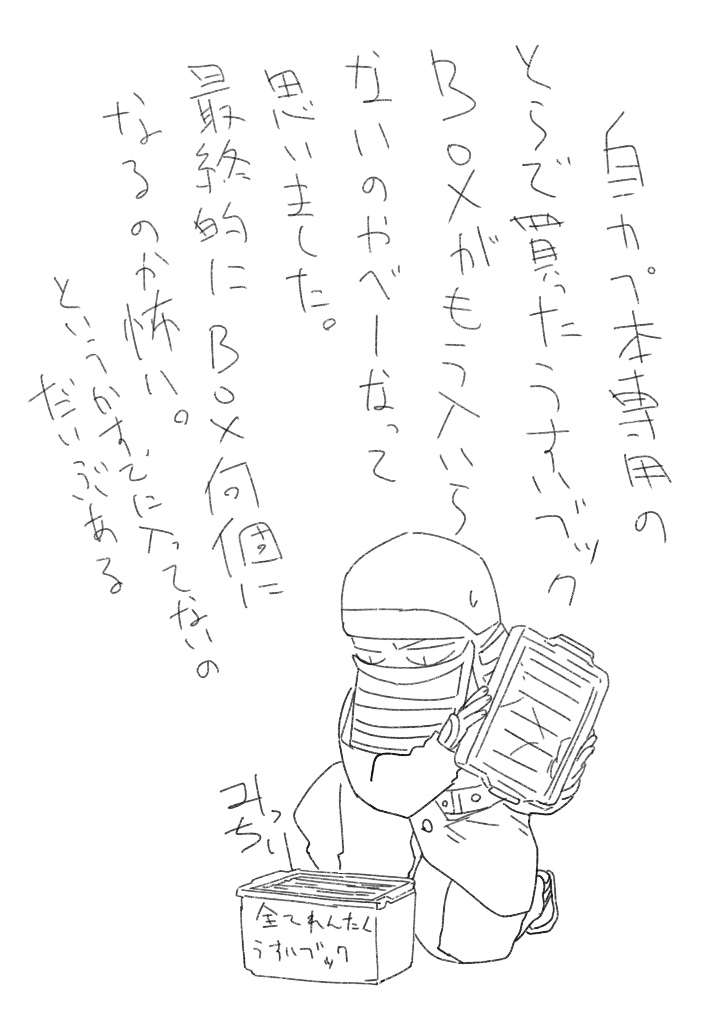 自カプ本専用の
とらで買ったうすいブック
BOXがもう入いら
ないのやべーなって
思いました。
最終的にBOX何個に
なるのか怖い。
というかすでに入ってないの
だいぶある
みっちり
全てれんたく
うすいブック